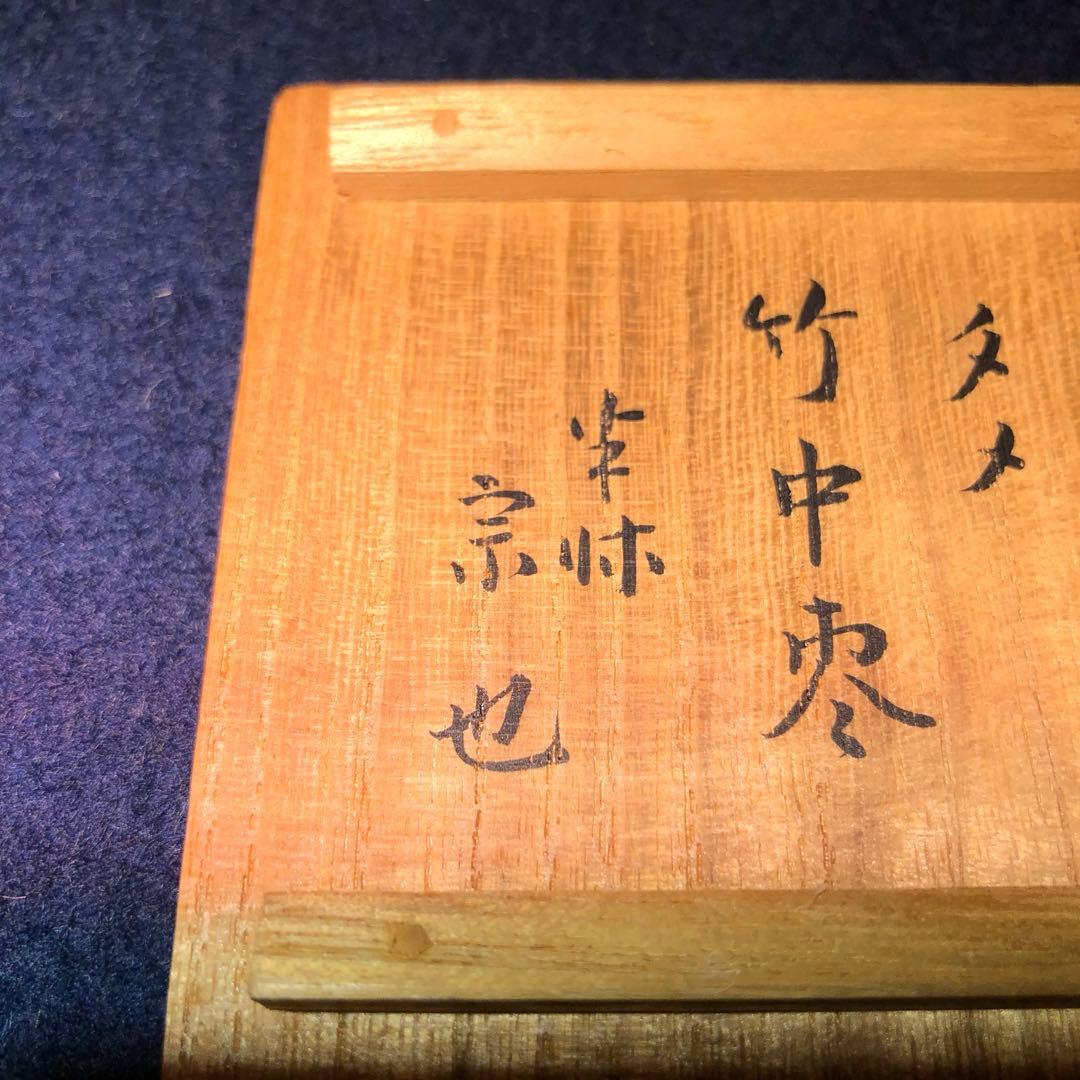 タメ
竹中棗
半床
宗也